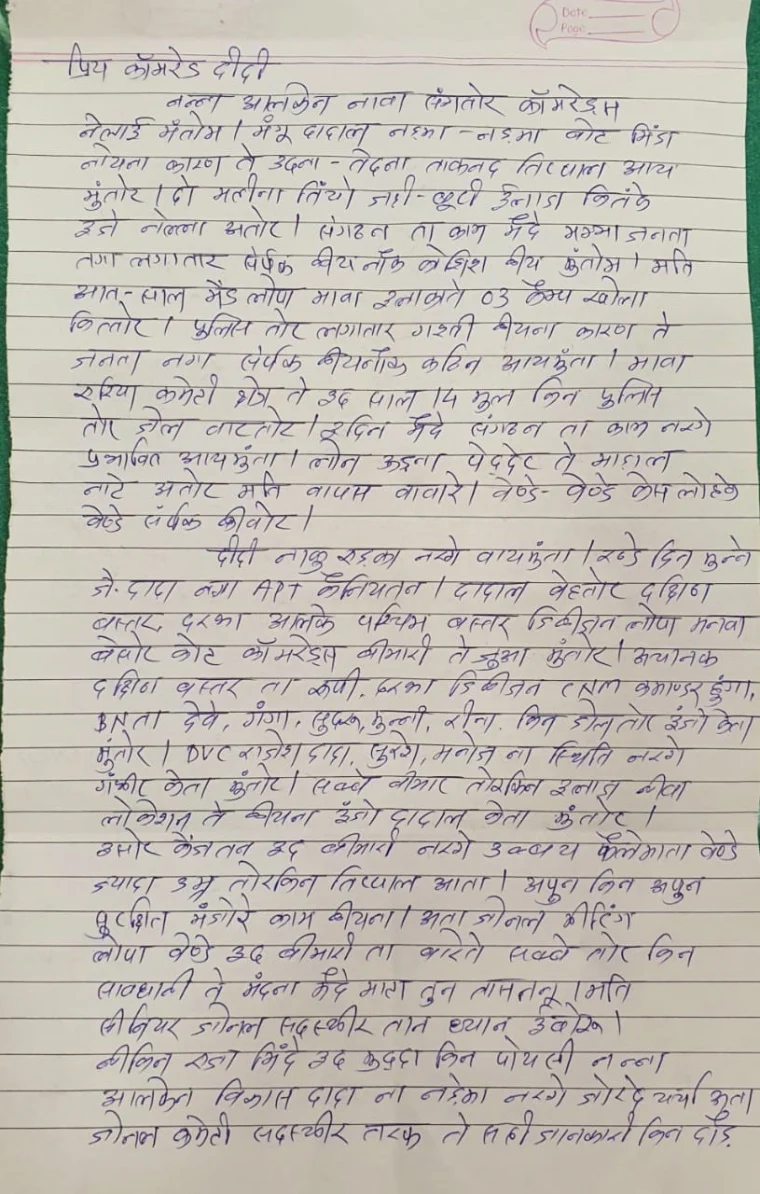 Date
Page
प्रिय कॉमरेड दीदी
नन्ना आलकेन नावा संगतोर कॉमरेड्स
नेलाई मंतोम। मंगू दादाल नड़मा-नड़मा बोट
नोयना कारण ते उदना-तेदना ताकनद तिप्पाल आय
मुंतोर। दो मलीना तिंयो जड़ी-बूटी ईलाज कितंके
इंजे नेल्ला अतोर। संगठन ता काम मैंदे मम्मा जनता
तगा लगातार संर्पक कीयनॉक कोशिश कीय मुंतोम। मति
आत-साल मैड लोप मावा इलाकाते 03 कैम्प खोला
कित्तोर। पुलिस तोर लगातार गश्ती कीयना कारण ते
जनता नगा संर्पक कीयनॉक कठिन आयमुंता। मावा
एरिया कमेटी क्षेत्र ते इद साल 14 मूल किन पुलिस
तोर जेल वाटतोर। इदिन मैंदे संगठन ता काम नरगे
प्रभावित आयमुंता। लोन ऊड़ना पेद्देट ते माड़ाल
नाटे अतोर मति वापस वावारे। वेण्डे-वेण्डे केस लोहके
वेण्डे संर्पक कीवोर।
दीदी नाकु एड़का नरगे वायमुंता। रण्डे दिन मुन्ने
जे. दादा नगा APT कैंचियतन। दादाल वेहतोर दक्षिण
बस्तर, दरभा आलके पश्चिम बस्तर डिवीजन लोप मनवा
बेसोर कोट कॉमरेड्स बीमारी ते जुआ मुंतोर। अचानक
दक्षिण बस्तर ता रूपी, दरभा डिवीजन CNM कमाण्डर हुंगा,
BN ता देवे, गंगा, सुदरू, मुन्नी, रीना. किन डोलतोर इंजो केता
मुंतोर। DVC राजेश दादा, सुरगे, मनोज ना स्थिति नरगे
गंभीर केता मुंतोर। सब्बे बीमार तोरकिन इलाज कीवा
लोकेशन ते कीयना इंजो दादाल केता मुंतोर।
इसोर कैंजतन इद बीमारी नरगे
ज्यादा उम्र तोरकिन तिप्पाल आता। अपुन किन अपुन
सुरक्षित मंजोरे काम कीयना। अता जोनल मीटिंग
लोपा वेण्डे इद बीमारी ता बारेते सब्बे तोर किन
सावधानी ते मंदना मैंदे माटा तुन तासतनू। मति
सीनियर जोनल सदस्यीर तान ध्यान ईवोरू।
इद कुददा किन पोयसी नन्ना
आलकेन विकास दादा ना नड़ेका नरगे जोरदे चर्चा आता।
जोनल कमेटी सदस्यीर तरफ ते सही जानकारी किन दौड़